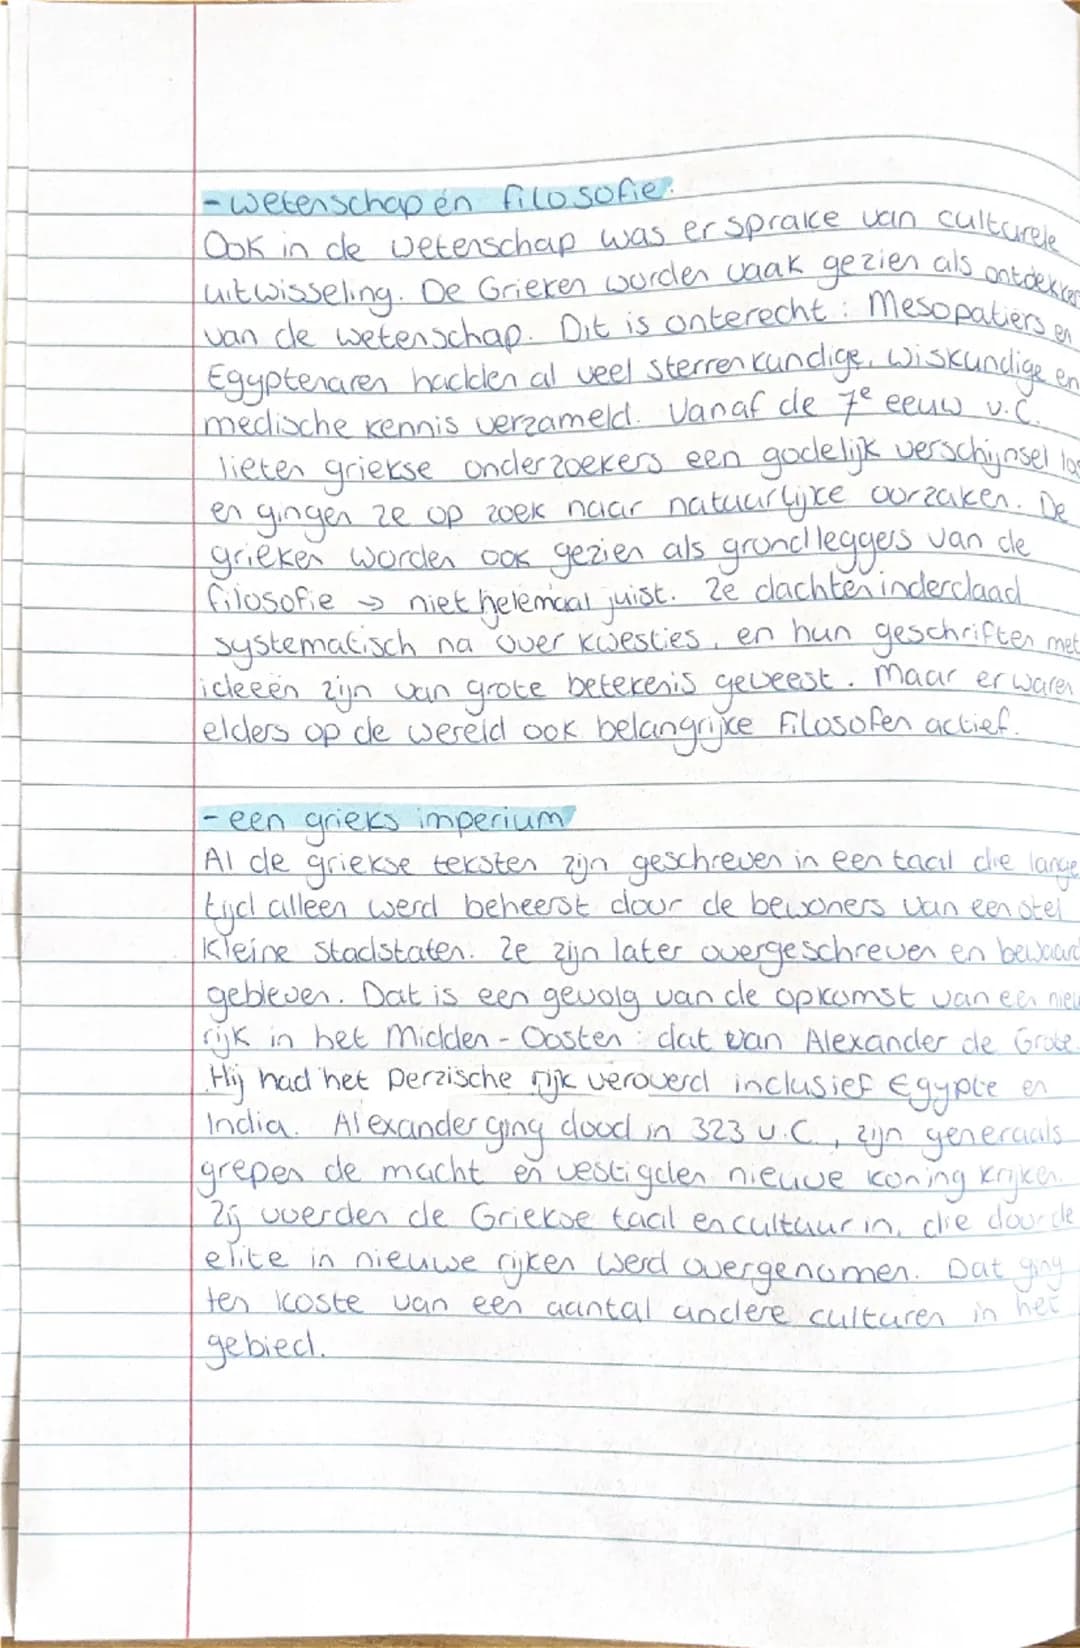 - wetenschap én filosofie:
Ook in de wetenschap was er sprake van culturele
uitwisseling. De Grieken worden vaak gezien als
van de wetenschap. Dit is onterecht: Mesopatiërs en
Egyptenaren hadden al veel sterrenkundige, wiskundige en
medische kennis verzameld. Vanaf de 7e eeuw v.C.
lieten griekse onderzoekers een godelijk verschijnsel
en gingen ze op zoek naar natuurlijke oorzaken. De
grieken worden ook gezien als grondleggers van de
filosofie → niet helemaal juist. Ze dachten inderdaad
systematisch na over kwesties, en hun geschriften met
ideeën zijn van grote betekenis geweest. Maar er waren
elders op de wereld ook belangrijke filosofen actief.
- een grieks imperium
Al de griekse teksten zijn geschreven in een taal die lange
tijd alleen werd beheerst door de bewoners van een stel
kleine stadstaten. Ze zijn later overgeschreven en bewaard
gebleven. Dat is een gevolg van de opkomst van een
rijk in het Midden-Oosten: dat van Alexander de Grote.
Hij had het Perzische rijk veroverd inclusief Egypte en
India. Alexander ging dood in 323 v.C., zijn generaals
grepen de macht en vestigden nieuwe koning krijken.
Zij voerden de Griekse taal en cultuur in, die door de
elite in nieuwe rijken werd overgenomen. Dat ging
ten koste van een aantal andere culturen in het
gebied.